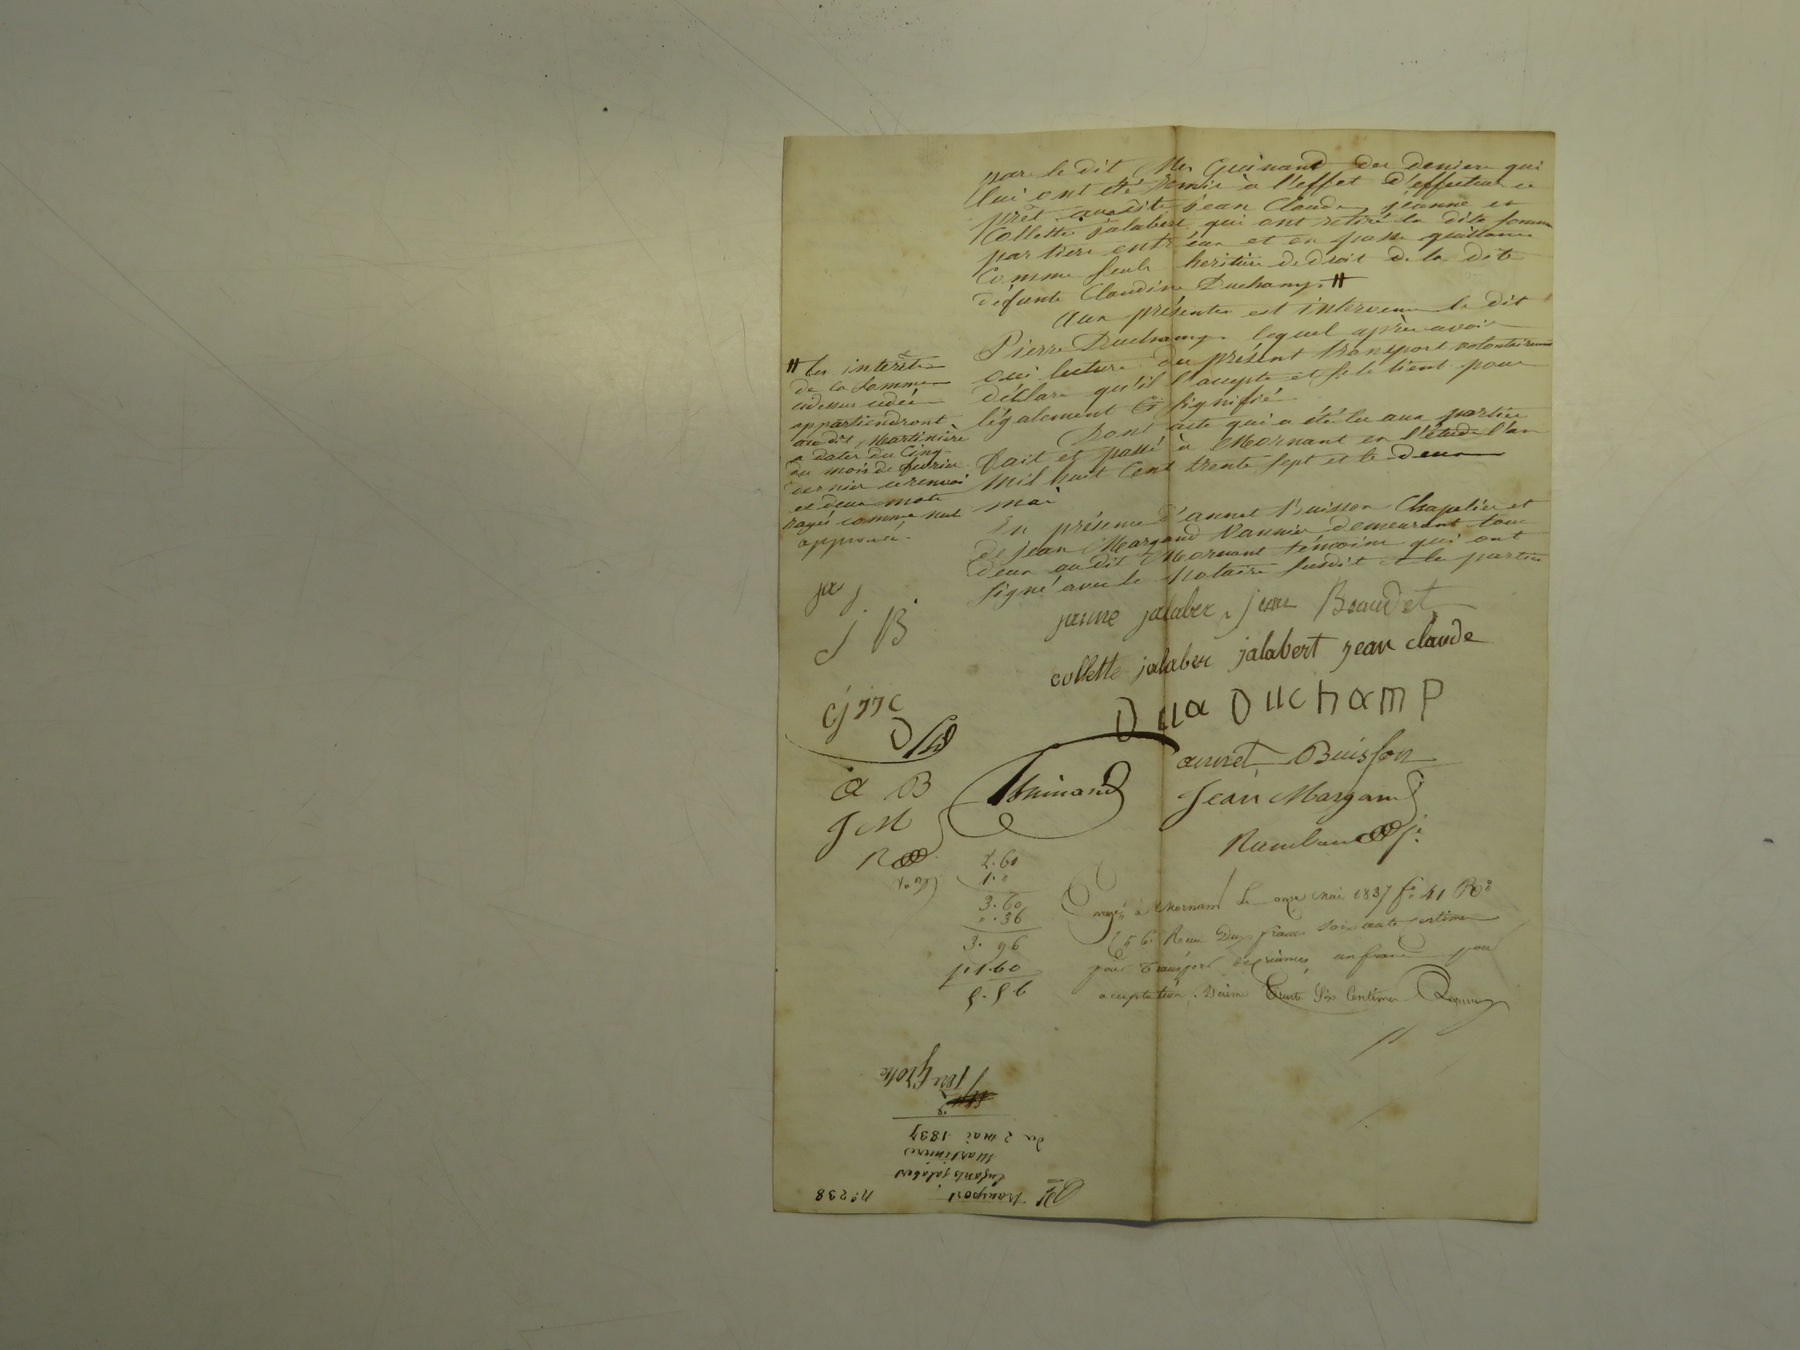 par le dit Me Guinand des deniers qui
lui ont été remis à l'effet d'effectuer ce
prêt auxdits jean Claude, jeanne et
Collette jalabert qui ont retiré la dite somme
par tiers entr'eux et en passe quittance
Comme seuls héritiers de droit de la dite
défunte Claudine Duchamp. #
Aux présentes est intervenu le dit
Pierre Duchamp lequel après avoir
oui lecture du présent transport volontairement
déclare qu'il l'accepte et se le tient pour
légalement signifié.
Dont acte qui a été lu aux parties
fait et passé à Mornant en l'étude l'an
mil huit Cent trente sept et le deux
mai
En présence d'annet Buisson Chapelier et
de jean Margand Vannier demeurant tous
deux au dit Mornant témoins qui ont
signé avec le Notaire susdit et les parties
# les intérêts
de la somme
cidessus cédée
appartiendront
audit Martinière
a dater du Cinq
du mois de février
dernier ce renvoi
et deux mots
rayés comme nuls
approuvé.
ja j
j B
cj jjc
D
a B
J M
R
jeanne jalaber jean Beaudet
collette jalaber jalabert jean claude
DUCHAMP
annet Buisson
Guinand
Jean Margand
2.60
1.0
3.60
0.36
3.96
1.60
5.56
à Mornant le onze mai 1837 fo 41 Ro
Reçu Deux francs soixante centimes
pour transport de créances, un franc pour
acceptation. Dixme trente six Centimes
No 238
transport
Enfants jalabert
Martinière
du 2 mai 1837